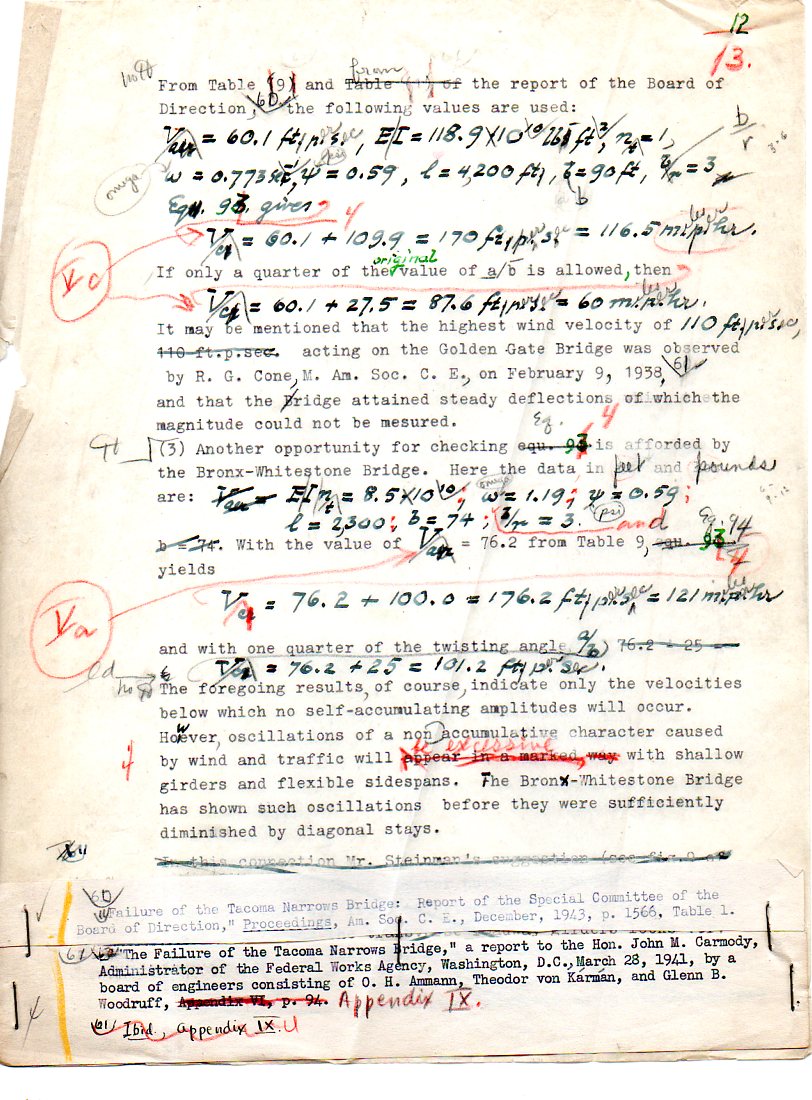 12
13.
From Table (9) and from Table of the report of the Board of
Direction, 60 the following values are used:
= 60.1 ft. per sec, EI = 118.9 × 10^10 lb ft², n = 1,
b/r
omega
ω = 0.773, ψ = 0.59, l = 4,200 ft, b = 90 ft, b/r = 3
psi
b
Equ. 93 gives 4
= 60.1 + 109.9 = 170 ft. per sec = 116.5 mi. per hr.
Vc
original
If only a quarter of the value of a/b is allowed, then
= 60.1 + 27.5 = 87.6 ft. per sec = 60 m. per hr.
It may be mentioned that the highest wind velocity of 110 ft. per sec,
110 ft.p.sec. acting on the Golden Gate Bridge was observed
by R. G. Cone, M. Am. Soc. C. E., on February 9, 1938, 61
and that the Bridge attained steady deflections of which the
magnitude could not be mesured.
Eq. 4
(3) Another opportunity for checking equ. 93 is afforded by
the Bronx-Whitestone Bridge. Here the data in feet and pounds
are: EI n = 8.5 × 10^10; ω = 1.19; ψ = 0.59;
omega
l = 2,300; b = 74; b/r = 3. (psi) and
Eq. 94
b = 74. With the value of = 76.2 from Table 9, equ. 93
4
yields
= 76.2 + 100.0 = 176.2 ft. per sec = 121 mi. per hr
Va
and with one quarter of the twisting angle a/b) 76.2 + 25 =
= 76.2 + 25 = 101.2 ft. per sec.
The foregoing results, of course, indicate only the velocities
below which no self-accumulating amplitudes will occur.
However, oscillations of a non accumulative character caused
be excessive
4
by wind and traffic will appear in a marked way with shallow
girders and flexible sidespans. The Bronx-Whitestone Bridge
has shown such oscillations before they were sufficiently
diminished by diagonal stays.
In this connection Mr. Steinman's suggestion (see fig.9
60 "Failure of the Tacoma Narrows Bridge: Report of the Special Committee of the
Board of Direction," Proceedings, Am. Soc. C. E., December, 1943, p. 1566, Table 1.
61 "The Failure of the Tacoma Narrows Bridge," a report to the Hon. John M. Carmody,
Administrator of the Federal Works Agency, Washington, D.C., March 28, 1941, by a
board of engineers consisting of O. H. Ammann, Theodor von Kármán, and Glenn B.
Woodruff, Appendix VI, p. 94. Appendix IX.
61 Ibid., Appendix IX.